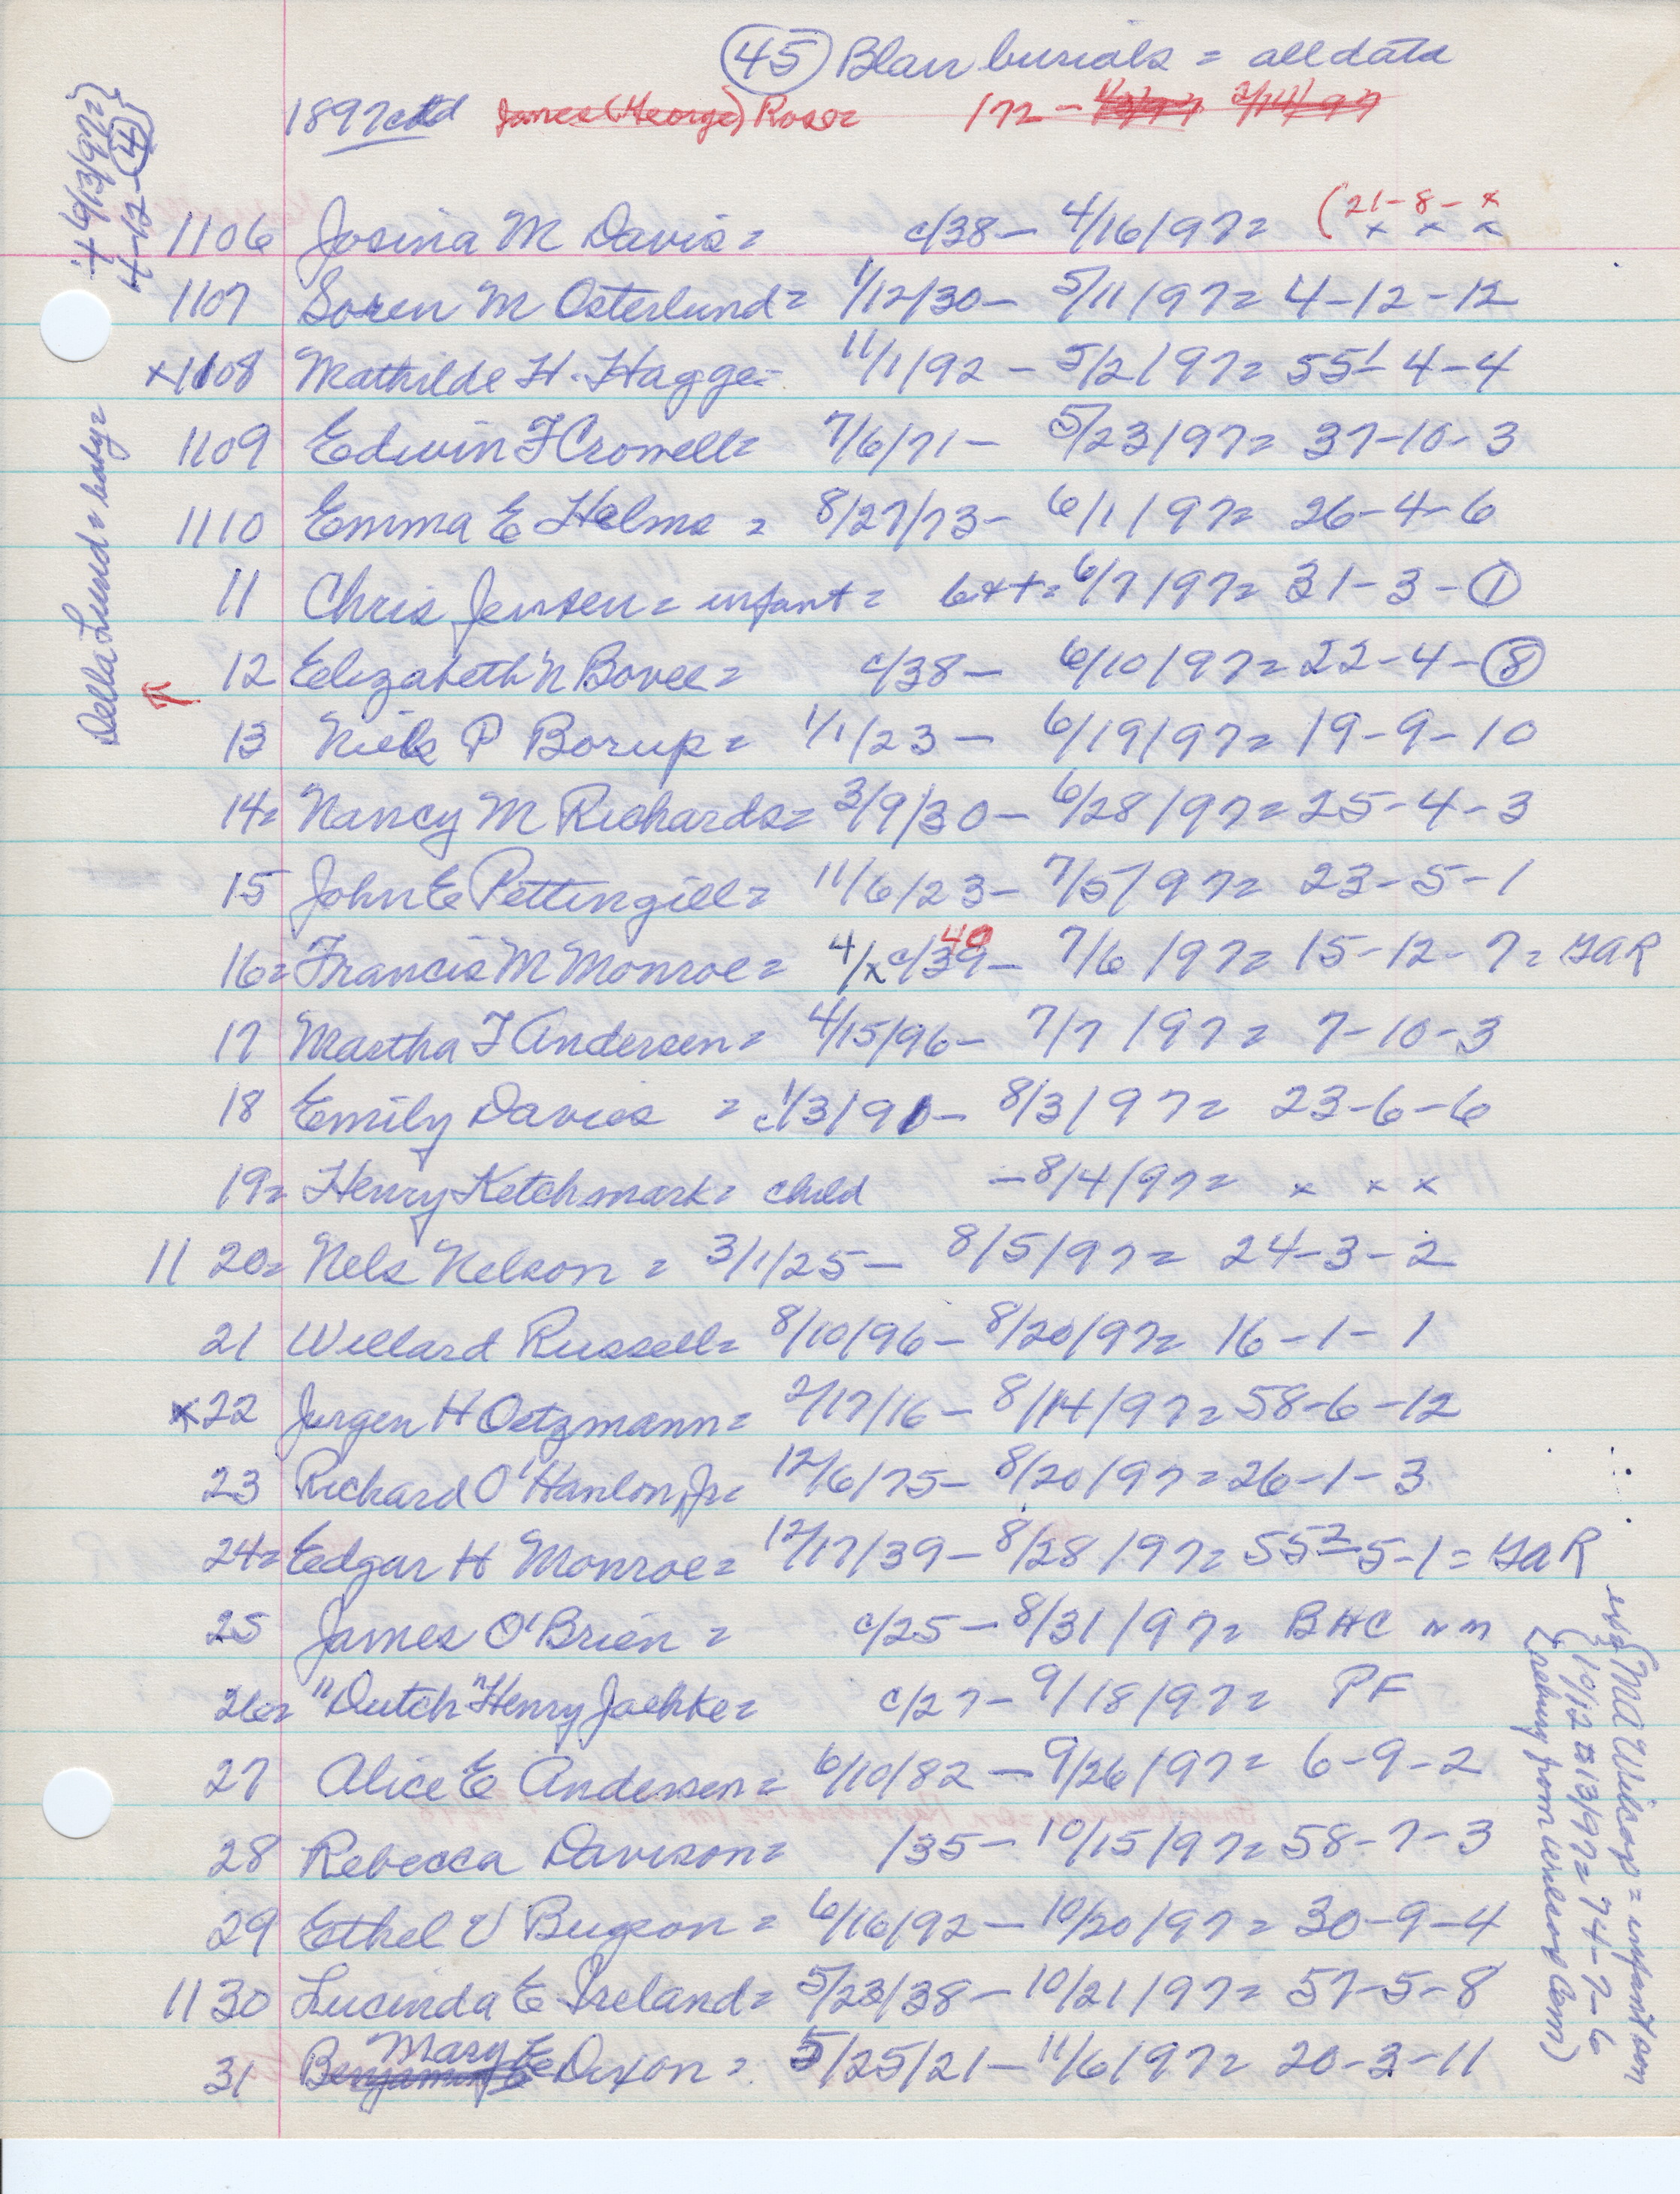 45 Blair burials = all data
1897 ctd James (George) Rose 172 - 4/3/97 2/14/97
(21-8-x
1106 Josina M Davis = c/38 - 4/16/97 = x x x
1107 Soren M Osterlund = 1/12/30 - 5/11/97 = 4-12-12
x1108 Mathilde H. Hagge - 11/1/92 - 5/2/97 = 55 1/- 4-4
1109 Edwin F Crowell = 7/6/71 - 5/23/97 = 37-10-3
1110 Emma E Helms = 8/27/73 - 6/1/97 = 26-4-6
11 Chris Jensen = infant = b&+ = 6/7/97 = 31-3-1
12 Elizabeth N Bovee = c/38 - 6/10/97 = 22-4-8
13 Niels P Borup = 1/1/23 - 6/19/97 = 19-9-10
14 = Nancy M Richards = 3/9/30 - 6/28/97 = 25-4-3
15 John E Pettingill = 11/6/23 - 7/5/97 = 23-5-1
40
16 = Francis M Monroe = 4/x c/39 - 7/6/97 = 15-12-7 = GAR
17 Martha F Andersen = 4/15/96 - 7/7/97 = 7-10-3
18 Emily Davies = c1/3/91 - 8/3/97 = 23-6-6
19 = Henry Ketchmark = child - 8/4/97 = x x x
1120 = Nels Nelson = 3/1/25 - 8/5/97 = 24-3-2
21 Willard Russell = 8/10/96 - 8/20/97 = 16-1-1
x22 Jurgen H Oetzmann = 2/17/16 - 8/14/97 = 58-6-12
23 Richard O'Hanlon, Jr = 12/6/75 - 8/20/97 = 26-1-3
24 = Edgar H Monroe = 12/17/39 - 8/28/97 = 55 2/- 5-1 = GAR
25 James O'Brien = c/25 - 8/31/97 = BHC nm
26 = "Dutch" Henry Jaehke = c/27 - 9/18/97 = PF
27 Alice E Andersen = 6/10/82 - 9/26/97 = 6-9-2
28 Rebecca Davison = /35 - 10/15/97 = 58-7-3
29 Ethel V Bugeon = 6/16/92 - 10/20/97 = 30-9-4
1130 Lucinda E Ireland = 5/23/38 - 10/21/97 = 57-5-8
Mary E
31 Benjamin E Dixon = 5/25/21 - 11/6/97 = 20-3-11
Della Lund = baby =
+ 6/13/97 =
4-12-4
= infant son
10/12 13/97 = 74-7-6
(reburg from Com)